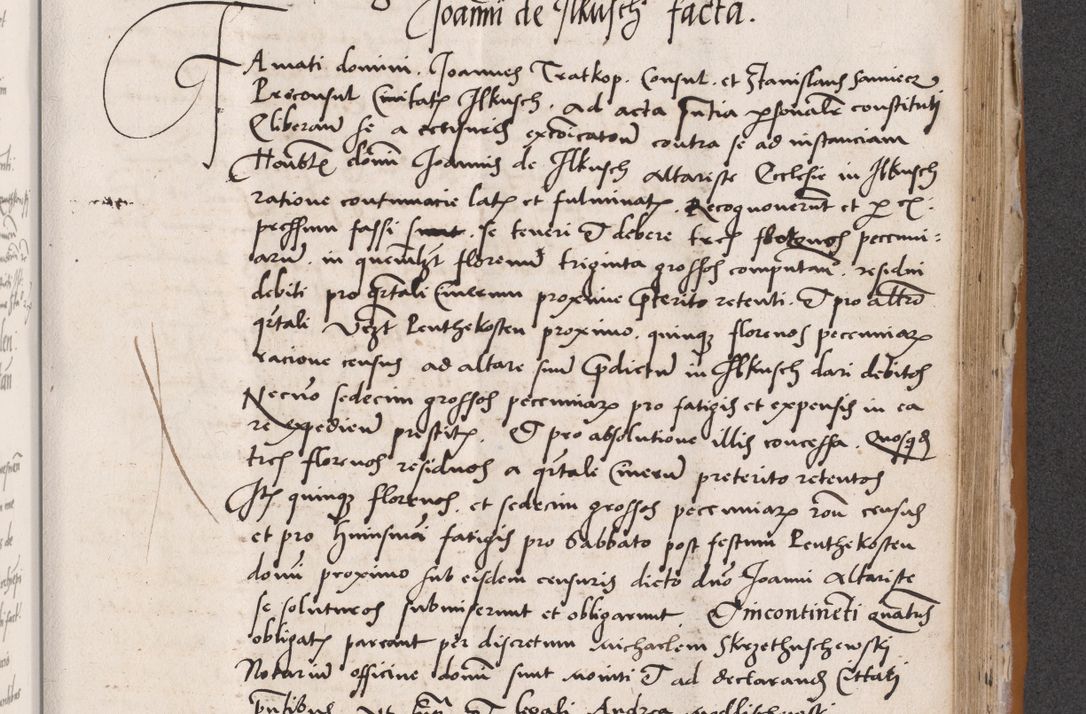 Joanni de Ilkusch facta.
Famati domini Joannes Tratkop Consul et Stanislaus
Proconsul Civitatis Ilkusch ad acta pntia psonalr constituti
a censuris contra se ad instanciam
Honoblis domini Joannis de Ilkusch altariste Ecclesie in Ilkusch
ratione contumacie latis et fulminatis. Recognoverunt et p ex
pressum fassi sunt se teneri et debere tres florenos pecuni-
arum in quemlibet florenum triginta grossos computan. residui
debiti pro qrtali Cinerum proxime preterito retenti. Et pro altro
qrtali Penthekosten proximo quinque florenos pecuniarum
racione census ad altare suum predictum in Ilkusch dari debitos
Necno sedecim grossos pecuniarum pro fatigis et expensis in ea
re prestitis. Et pro absolutione illis concessa. Quosquid
tres florenos residuos a qrtale Cinerum preterito retentos
Itm quinque florenos et sedecim grossos pecuniarum ron census
et pro huiusmoi fatigis pro Sabbato post festum Penthekosten
domi proximo sub eisdem censuris dicto dno Joanni altariste
se soluturos submiserunt et obligarunt. Et incontinenti quatenus
obligatis pareant per discretum Michaelem Skrzethuschewski
Notarium officine domi sunt moniti Et ad declarandum
pntibus legali Andrea